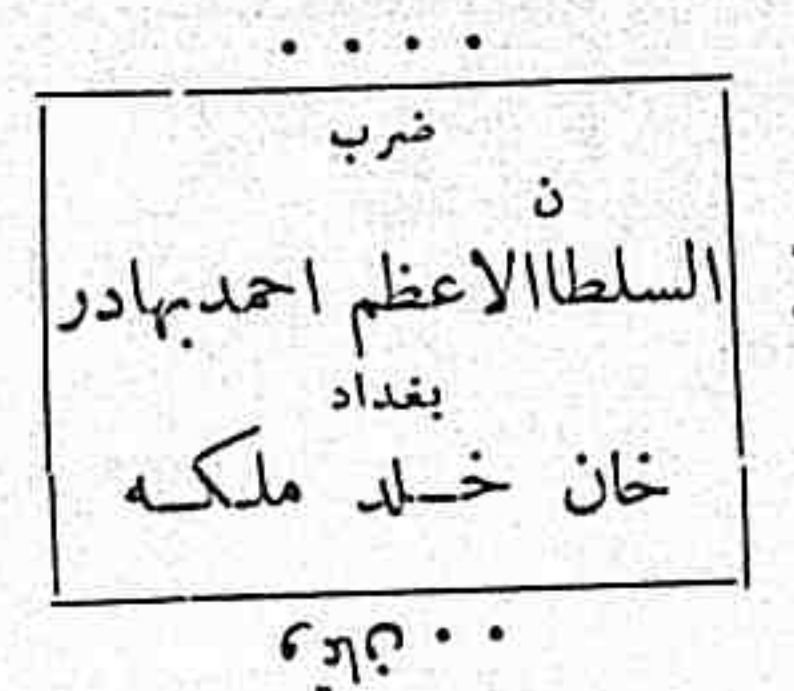 ضرب
ن
السلطاالاعظم احمد بهادر
بغداد
خان خلد ملكه